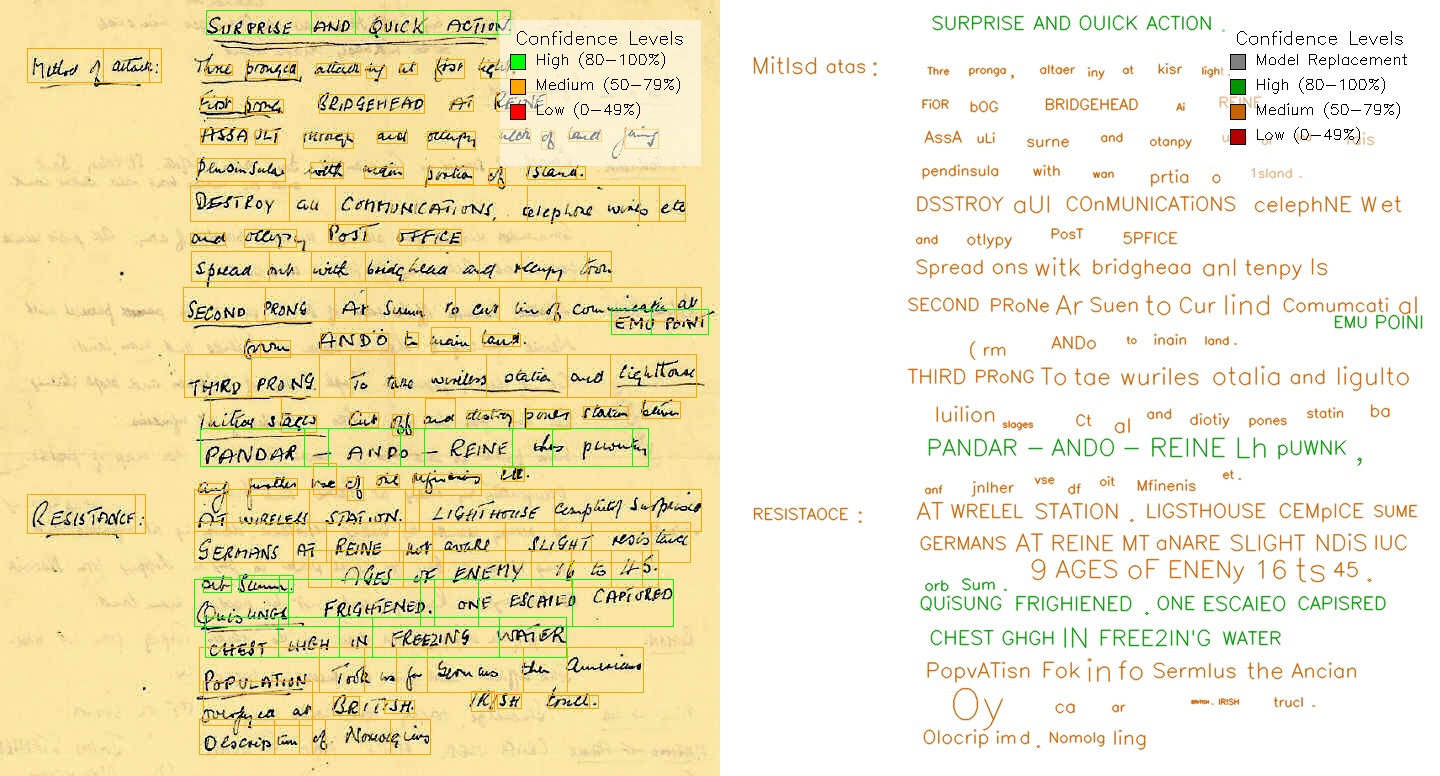 SURPRISE AND QUICK ACTION.
Confidence Levels
High (80-100%)
Medium (50-79%)
Low (0-49%)
Method of attack:
Three pronged, attacking at first light
First prong BRIDGEHEAD AT REINE
ASSAULT through and occupy neck of land joining
peninsula with main portion of Island.
DESTROY all COMMUNICATIONS, telephone wires etc
and occupy POST OFFICE
Spread out with bridghead and occupy town
SECOND PRONG At Sumn to cut line of communication at
EMU POINT
from ANDÖ to main land.
THIRD PRONG. To take wireless station and lighthouse
Initial stages Cut off and destroy power station between
PANDAR - ANDO - REINE thus preventing
any further use of one refineries etc.
RESISTANCE:
AT WIRELESS STATION. LIGHTHOUSE completely surprised
GERMANS AT REINE not aware SLIGHT resistance
AGES OF ENEMY 16 to 45.
at Sumn.
QUISLINGS FRIGHTENED. ONE ESCAPED CAPTURED
CHEST HIGH IN FREEZING WATER
POPULATION Took us for Germans then Americans
overjoyed at BRITISH. IRISH touch.
Description of Norwegians
SURPRISE AND OUICK ACTION .
Confidence Levels
Model Replacement
High (80-100%)
Medium (50-79%)
Low (0-49%)
Mitlsd atas :
Thre pronga, altaer iny at kisr light.
FiOR bOG BRIDGEHEAD Ai REINE
AssA uLi surne and otanpy
pendinsula with wan prtia o 1sland .
DSSTROY aUl COnMUNICATiONS celephNE W et
and otlypy PosT 5PFICE
Spread ons witk bridgheaa anl tenpy ls
SECOND PRoNe Ar Suen to Cur lind Comumcati al
EMU POINI
( rm ANDo to inain land .
THIRD PRoNG To tae wuriles otalia and ligulto
luilion slages Ct al and diotiy pones statin ba
PANDAR - ANDO - REINE Lh pUWNK ,
anf jnlher vse df oit Mfinenis et.
RESISTAOCE :
AT WRELEL STATION . LIGSTHOUSE CEMpICE SUME
GERMANS AT REINE MT aNARE SLIGHT NDiS IUC
9 AGES oF ENENy 16 ts 45 .
orb Sum .
QUiSUNG FRIGHIENED . ONE ESCAIEO CAPISRED
CHEST GHGH IN FREE2IN'G WATER
PopvATisn Fok in fo Sermlus the Ancian
Oy ca ar BRITISH . IRISH trucl .
Olocrip imd . Nomolg ling